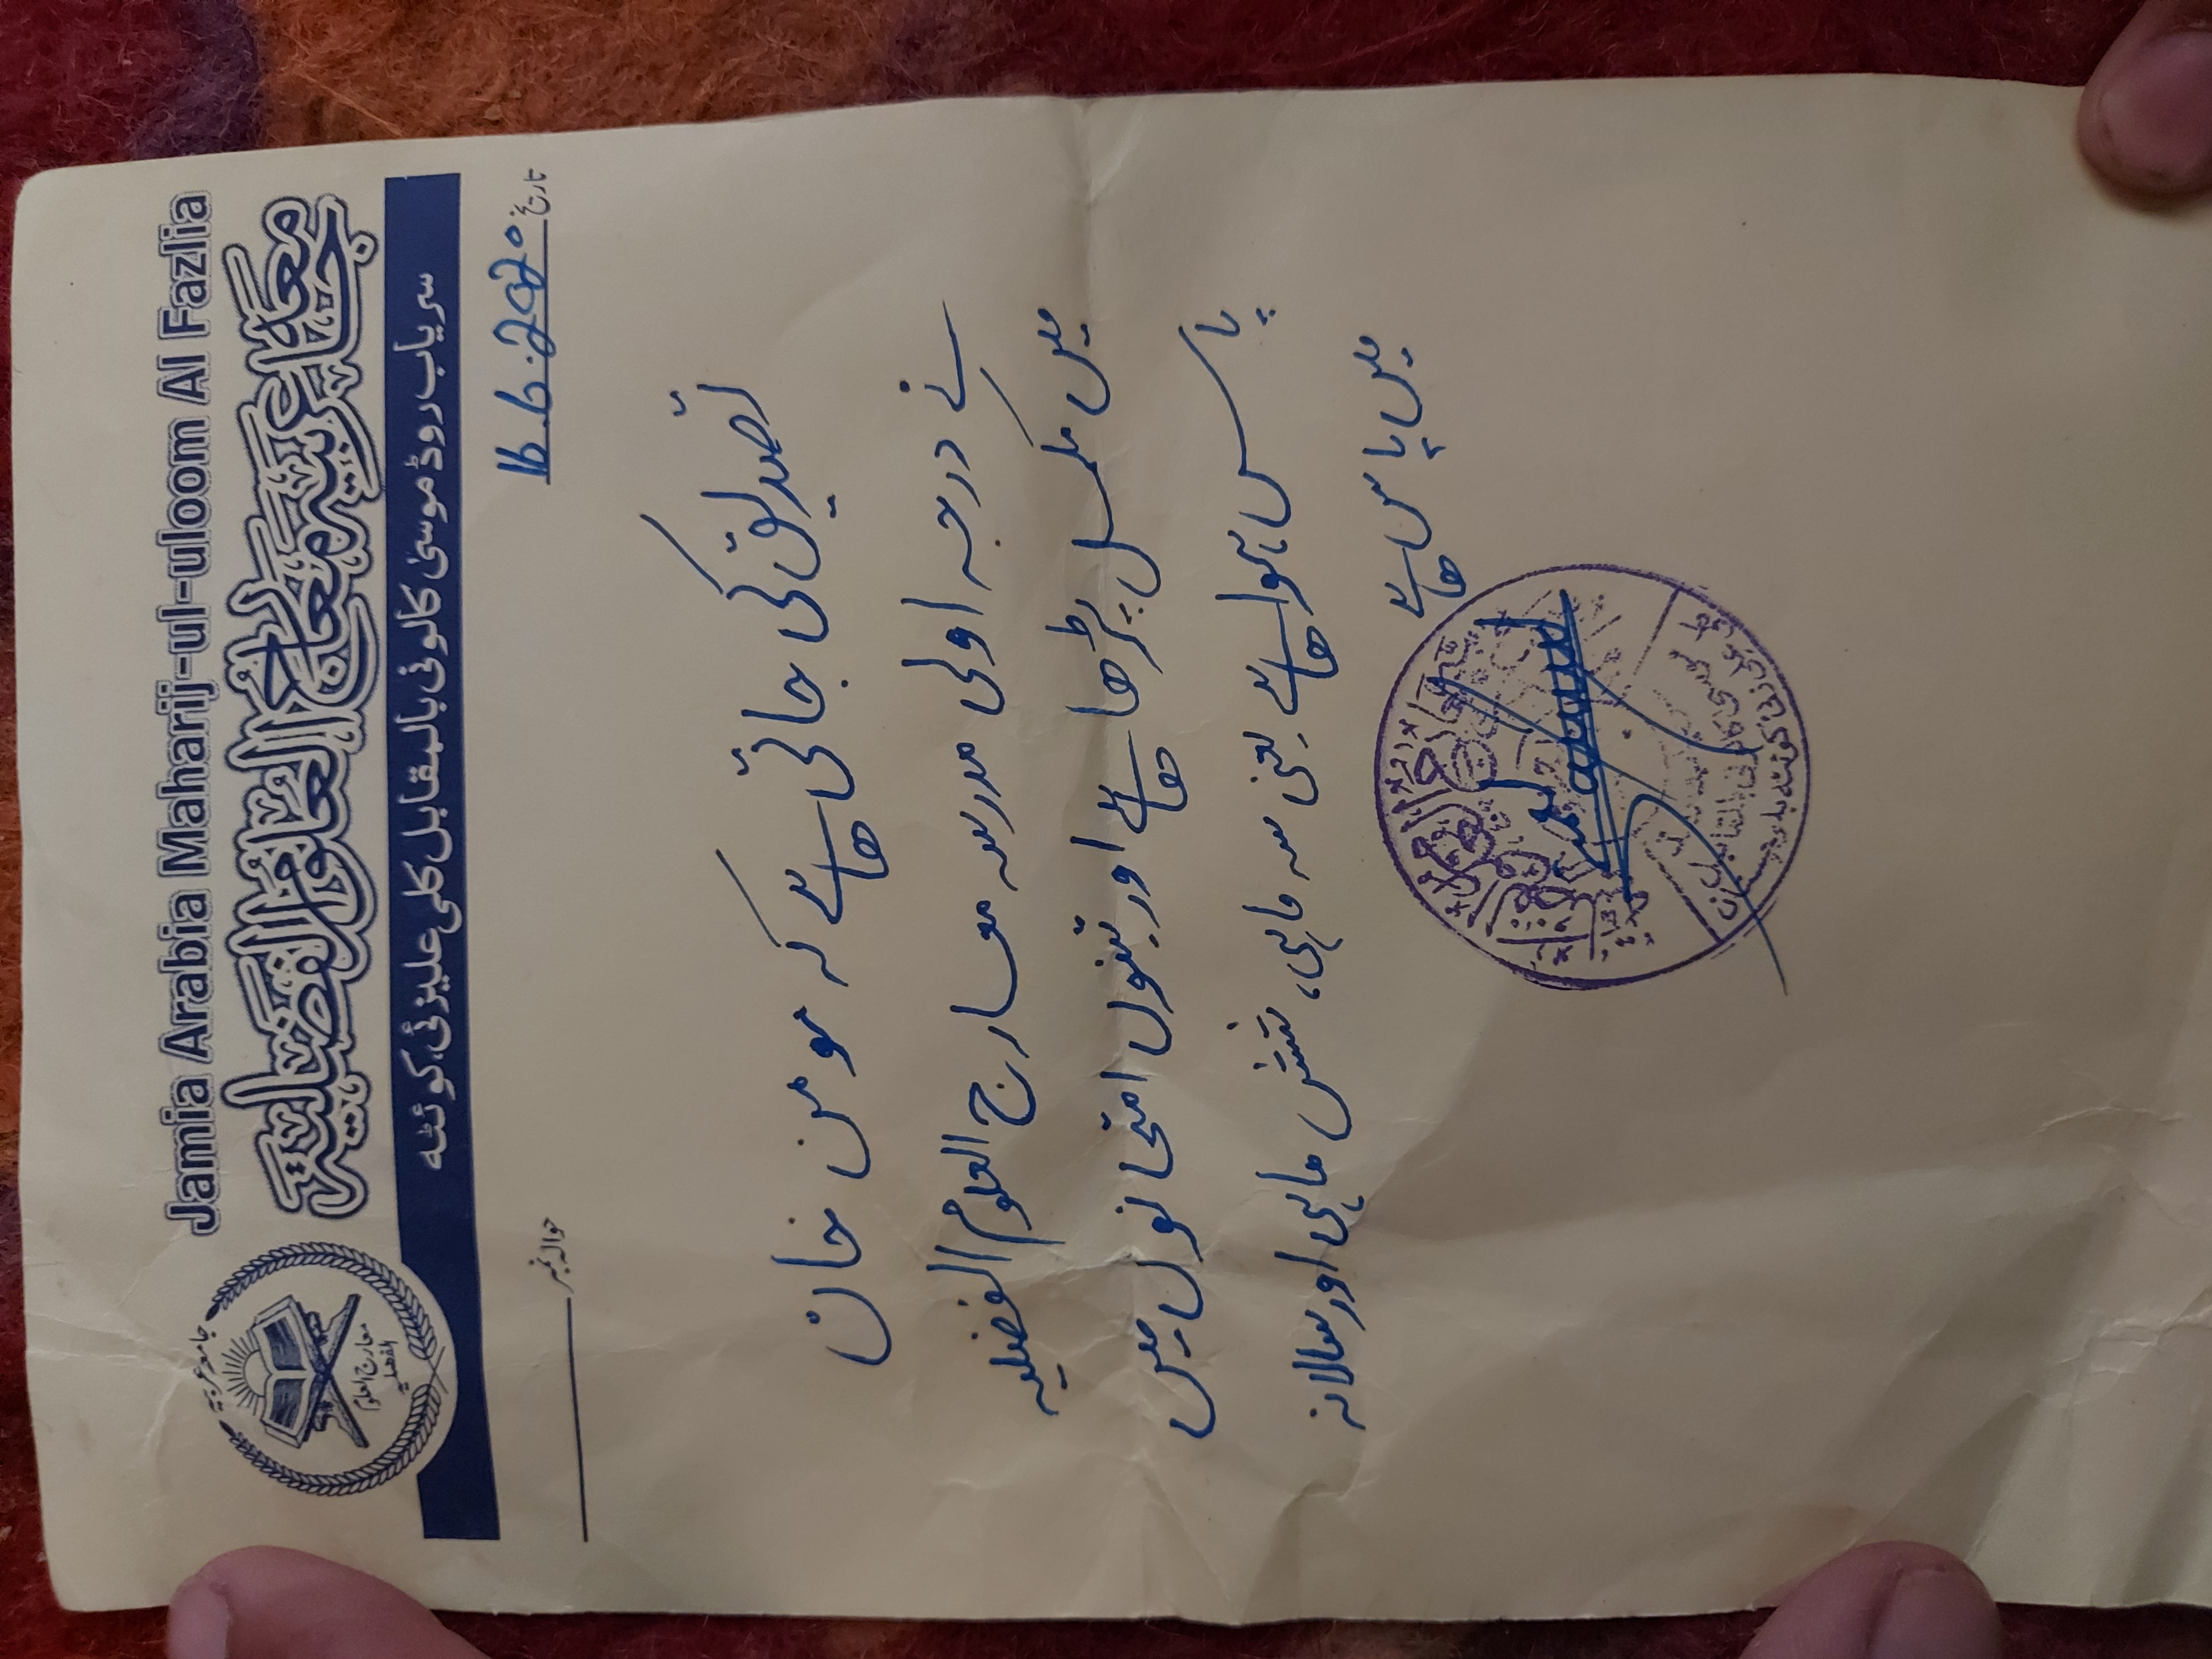 Jamia Arabia Maharij-ul-uloom Al Fazlia
جامعہ عربیہ معارج العلوم الفضلیہ
سریاب روڈ موسیٰ کالونی بالمقابل کلی علیزئی، کوئٹہ
جامعہ عربیہ
معارج العلوم
الفضلیہ
تاریخ: 16.6.2020
حوالہ نمبر
تصدیق کی جاتی ھے کہ مومن خان
نے درجہ اولی مدرسہ معارج العلوم الفضلیہ
میں مکمل پڑھا ھے اور تینوں امتحانوں میں
پاس ہوا ھے یعنی سہ ماہی، شش ماہی اور سالانہ
میں پاس ھے